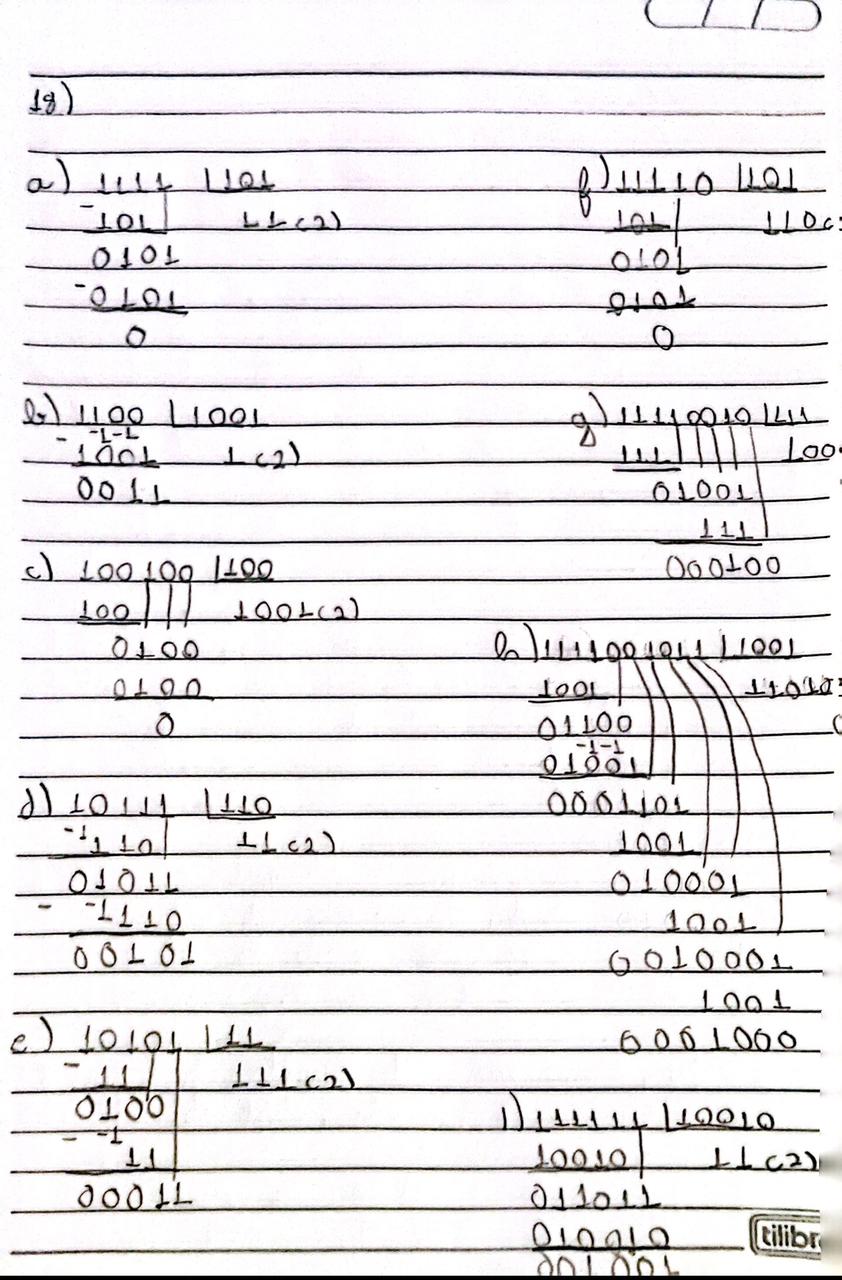 18)
a) 1111 |101
-101 11(2)
0101
-0101
0
b) 1100 |1001
-1-1
- 1001 1(2)
0011
c) 100100 |100
100 1001(2)
0100
0100
0
d) 10111 |110
-1110 11(2)
01011
- -1110
00101
e) 10101 |11
- 11 111(2)
0100
- -1
11
00011
f) 11110 |101
101 110(
0101
0101
0
g) 11110010 |111
111 100
01001
111
000100
h) 1111001011 |1001
1001 11010
01100
-1-1
01001
0001101
1001
010001
1001
0010001
1001
0001000
i) 111111 |10010
10010 11(2)
011011
010010
001001
tilibr